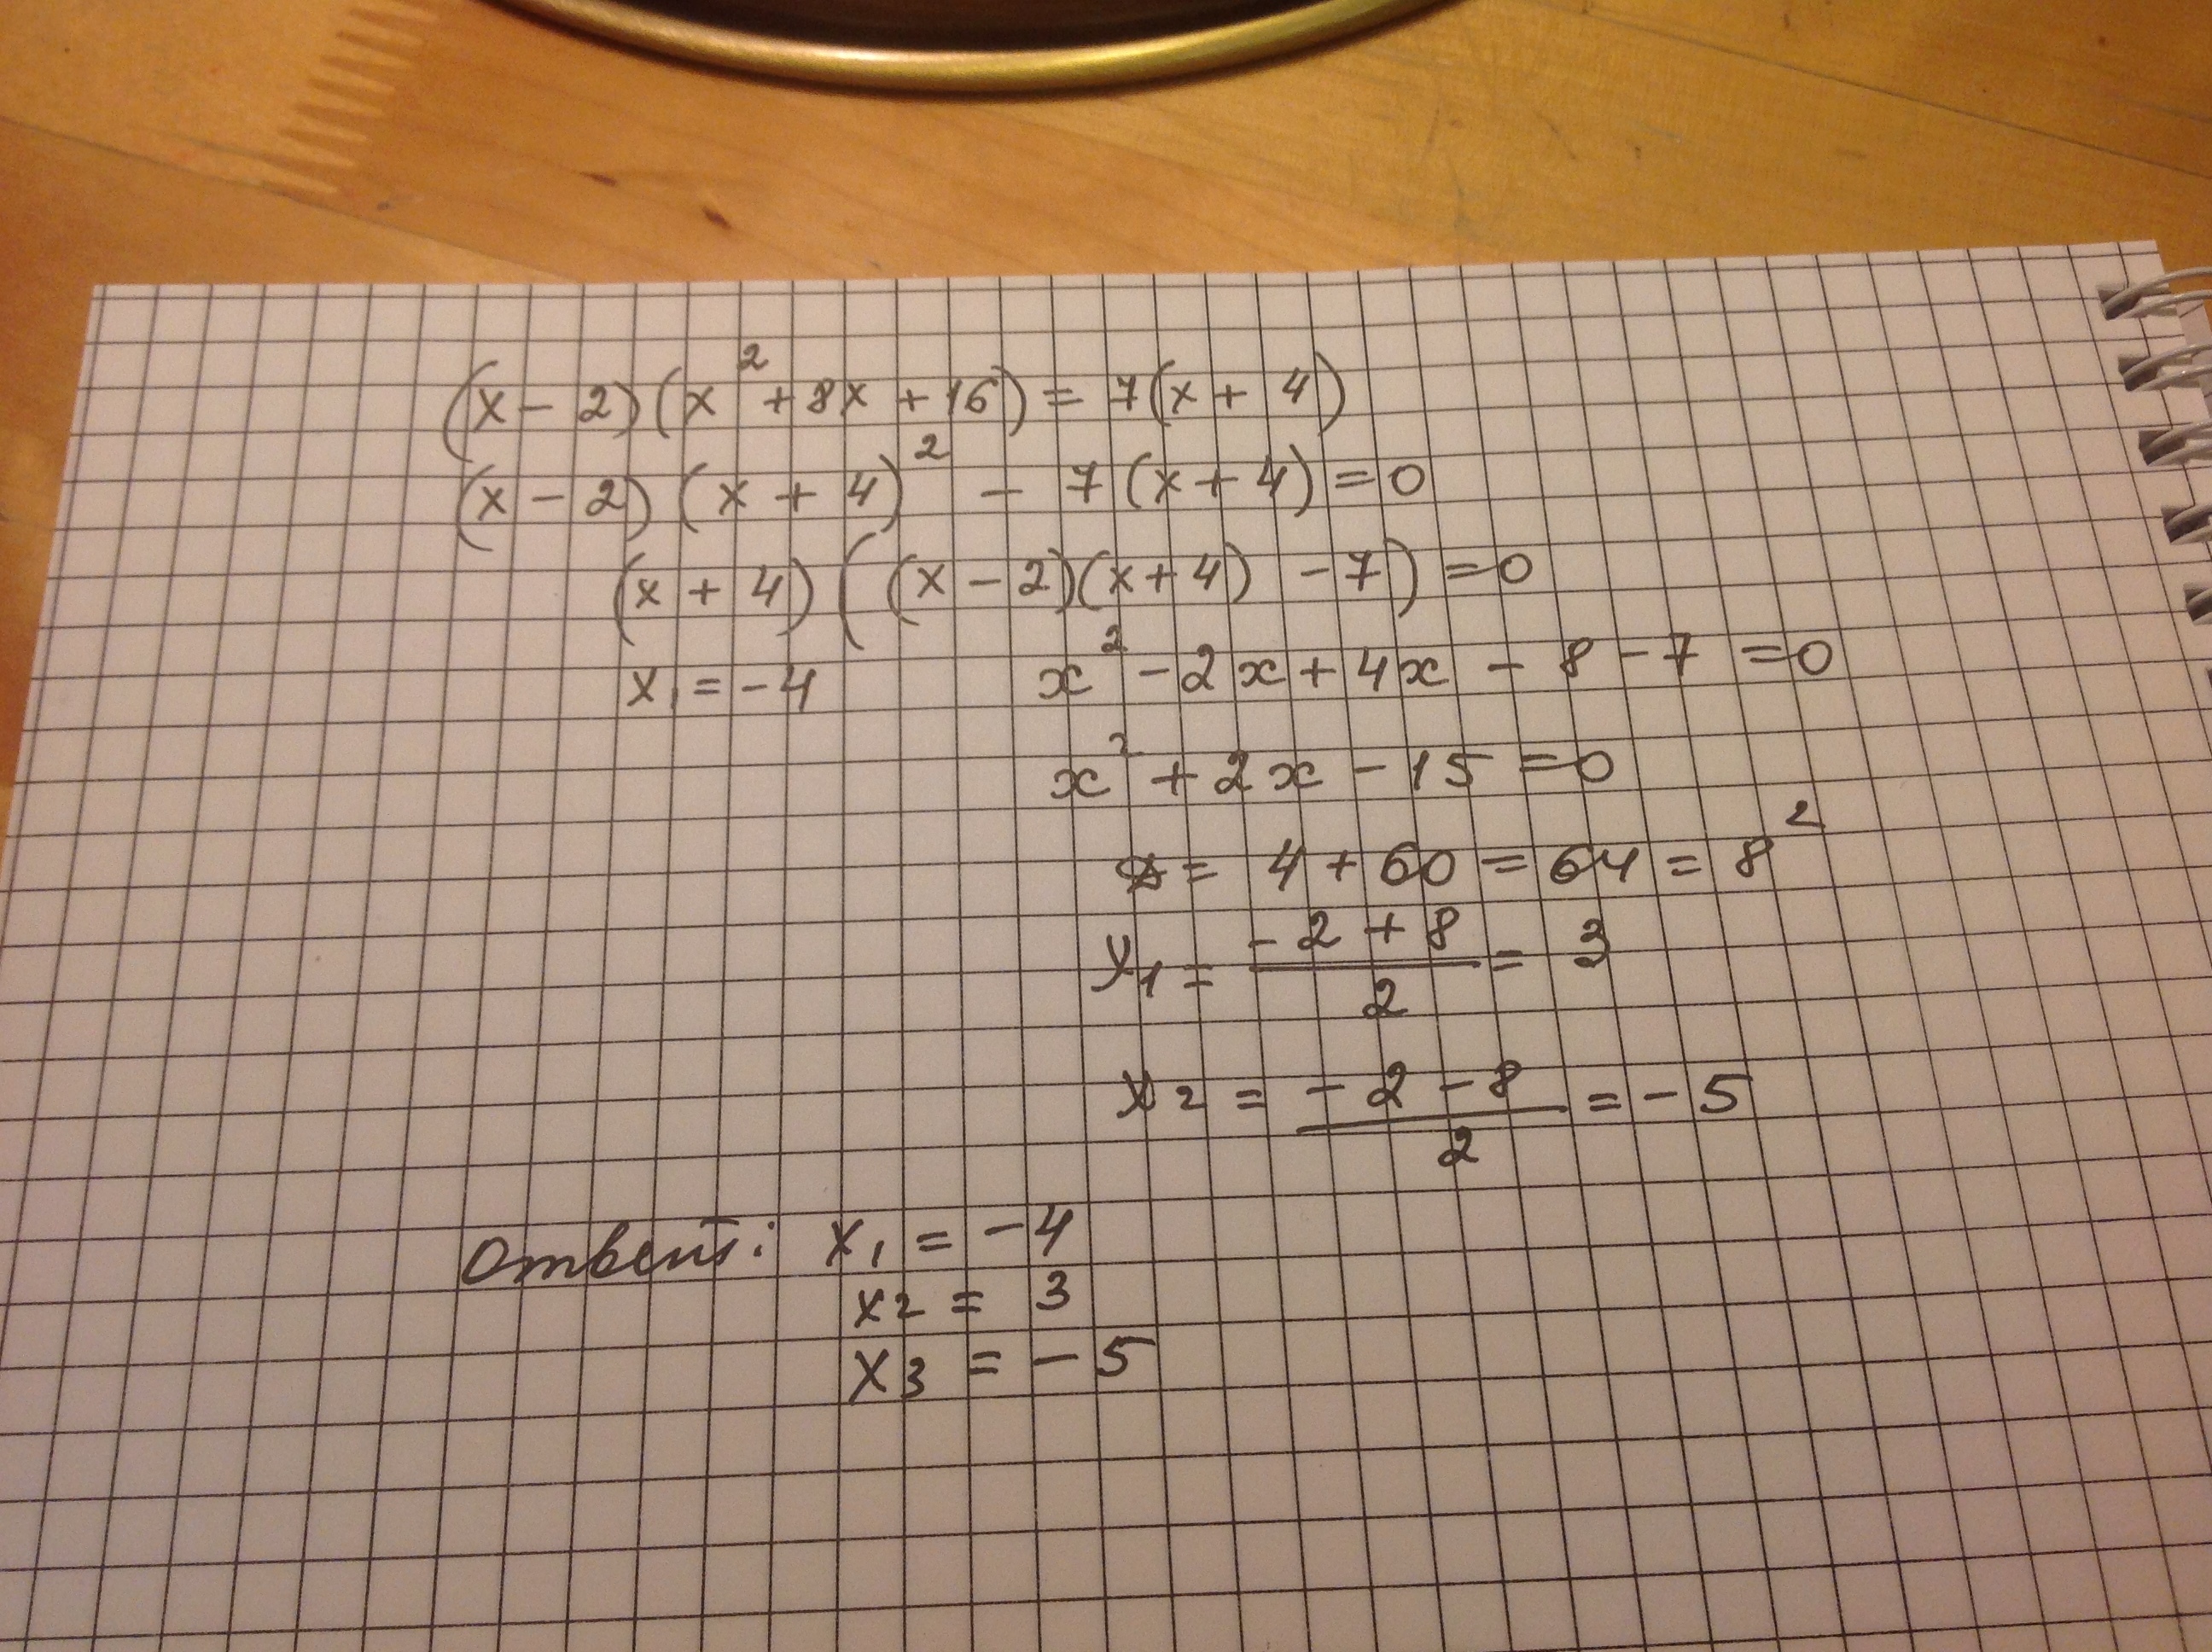 (x - 2)(x² + 8x + 16) = 7(x + 4)
(x - 2)(x + 4)² - 7(x + 4) = 0
(x + 4)((x - 2)(x + 4) - 7) = 0
x₁ = -4 x² - 2x + 4x - 8 - 7 = 0
x² + 2x - 15 = 0
D = 4 + 60 = 64 = 8²
x₁ = (-2 + 8)/2 = 3
x₂ = (-2 - 8)/2 = -5
Ответ: x₁ = -4
x₂ = 3
x₃ = -5